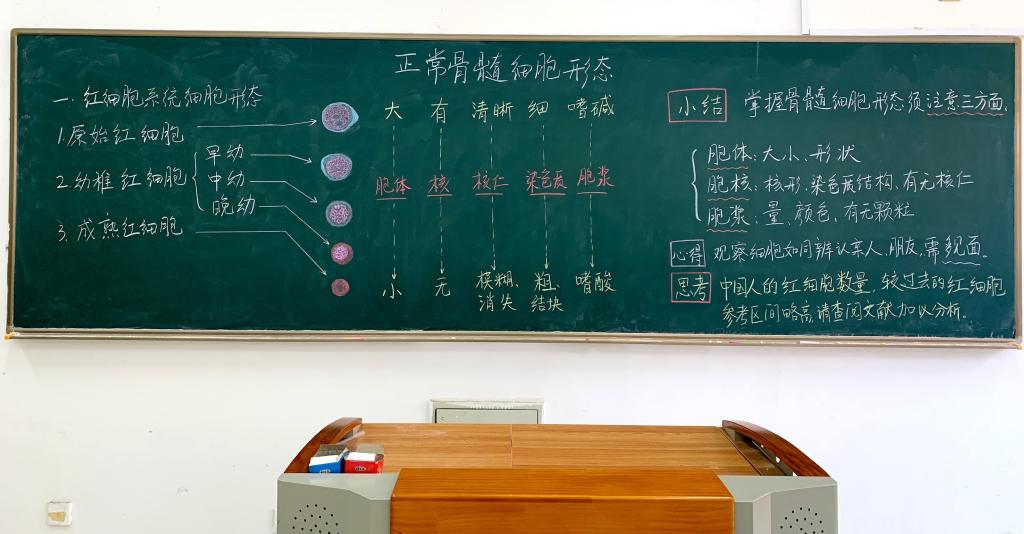 正常骨髓细胞形态
一.红细胞系统细胞形态
1.原始红细胞
2.幼稚红细胞
早幼
中幼
晚幼
3.成熟红细胞
大 有 清晰 细 嗜碱
胞体 核 核仁 染色质 胞浆
小 无 模糊、消失 粗、结块 嗜酸
小结 掌握骨髓细胞形态须注意三方面.
胞体:大小、形状
胞核:核形、染色质结构、有无核仁
胞浆:量、颜色、有无颗粒
心得 观察细胞如同辨认亲人、朋友,需多见面.
思考 中国人的红细胞数量,较过去的红细胞
参考区间略高,请查阅文献加以分析.